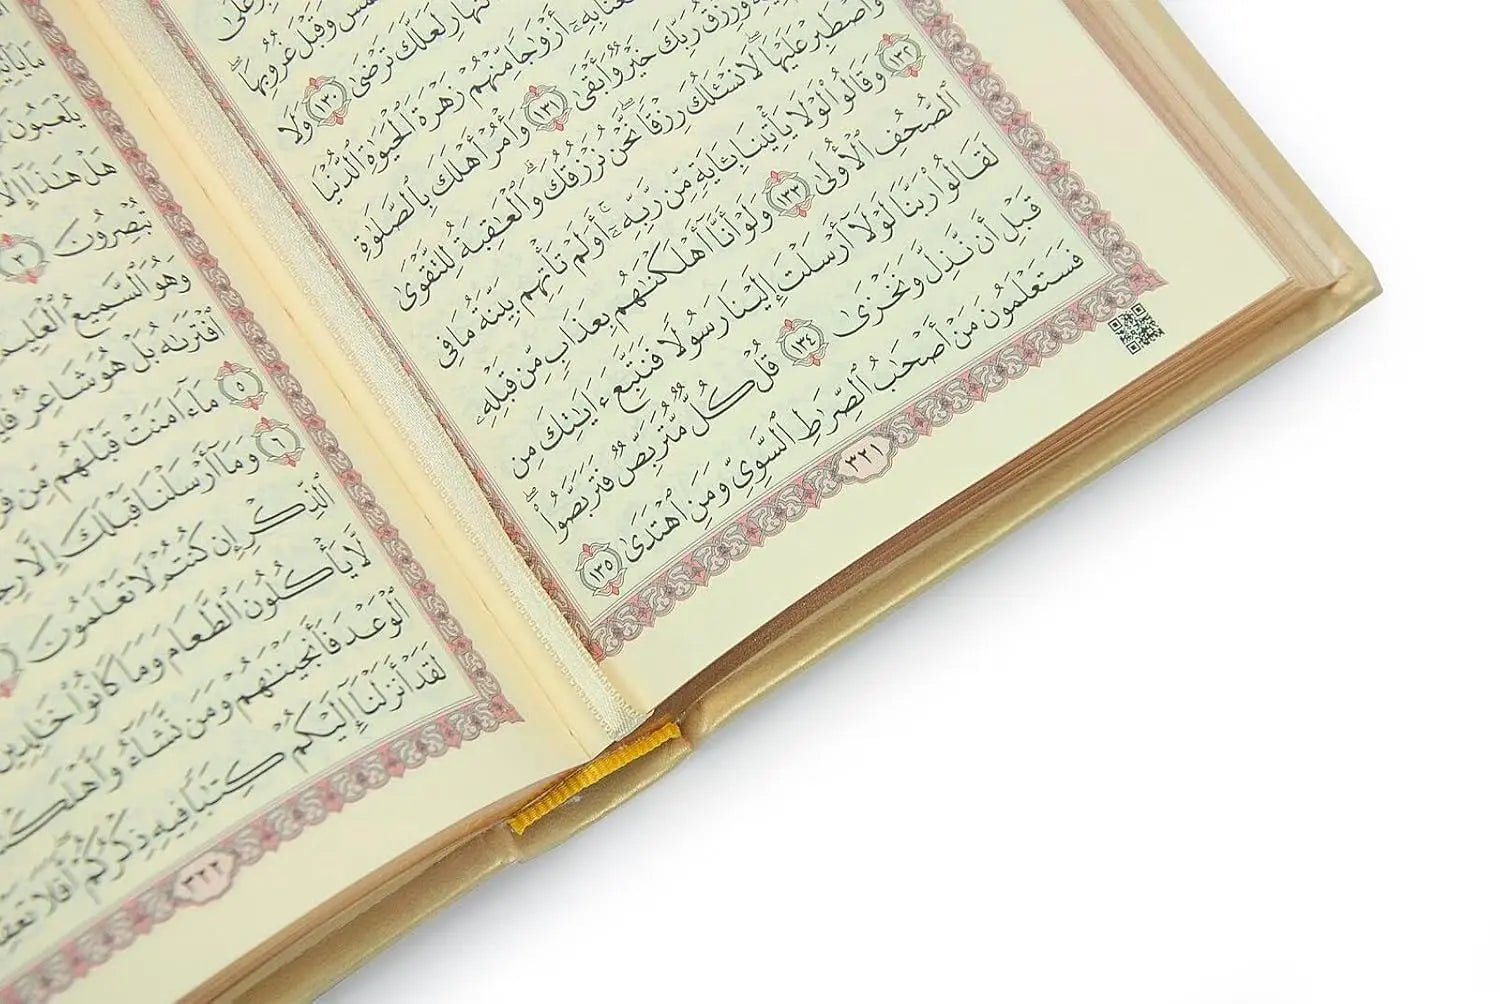 وَقَبْلَ غُرُوبِهَا ۖ
لَعَلَّكَ تَرْضَىٰ ١٣٠ وَلَا
أَزْوَٰجًا مِّنْهُمْ زَهْرَةَ ٱلْحَيَوٰةِ ٱلدُّنْيَا
وَرِزْقُ رَبِّكَ خَيْرٌ وَأَبْقَىٰ ١٣١ وَأْمُرْ أَهْلَكَ بِٱلصَّلَوٰةِ
وَٱصْطَبِرْ عَلَيْهَا ۖ لَا نَسْـَٔلُكَ رِزْقًا ۖ نَّحْنُ نَرْزُقُكَ ۗ وَٱلْعَـٰقِبَةُ لِلتَّقْوَىٰ
١٣٢ وَقَالُوا۟ لَوْلَا يَأْتِينَا بِـَٔايَةٍ مِّن رَّبِّهِۦٓ ۚ أَوَلَمْ تَأْتِهِم بَيِّنَةُ مَا فِى
ٱلصُّحُفِ ٱلْأُولَىٰ ١٣٣ وَلَوْ أَنَّآ أَهْلَكْنَـٰهُم بِعَذَابٍ مِّن قَبْلِهِۦ
لَقَالُوا۟ رَبَّنَا لَوْلَآ أَرْسَلْتَ إِلَيْنَا رَسُولًا فَنَتَّبِعَ ءَايَـٰتِكَ مِن
قَبْلِ أَن نَّذِلَّ وَنَخْزَىٰ ١٣٤ قُلْ كُلٌّ مُّتَرَبِّصٌ فَتَرَبَّصُوا۟ ۖ
فَسَتَعْلَمُونَ مَنْ أَصْحَـٰبُ ٱلصِّرَٰطِ ٱلسَّوِىِّ وَمَنِ ٱهْتَدَىٰ ١٣٥
٣٢١
يَلْعَبُونَ
هَلْ هَـٰذَآ إِلَّا
تُبْصِرُونَ ٣
وَهُوَ ٱلسَّمِيعُ ٱلْعَلِيمُ
ٱفْتَرَىٰهُ بَلْ هُوَ شَاعِرٌ
٥ مَآ ءَامَنَتْ قَبْلَهُم مِّن
٦ وَمَآ أَرْسَلْنَا قَبْلَكَ إِلَّا
ٱلذِّكْرِ إِن كُنتُمْ لَا تَعْلَمُونَ
لَّا يَأْكُلُونَ ٱلطَّعَامَ وَمَا كَانُوا۟ خَـٰلِدِينَ
ٱلْوَعْدَ فَأَنجَيْنَـٰهُمْ وَمَن نَّشَآءُ
لَقَدْ أَنزَلْنَآ إِلَيْكُمْ كِتَـٰبًا فِيهِ ذِكْرُكُمْ ۖ أَفَلَا
٣٢٢